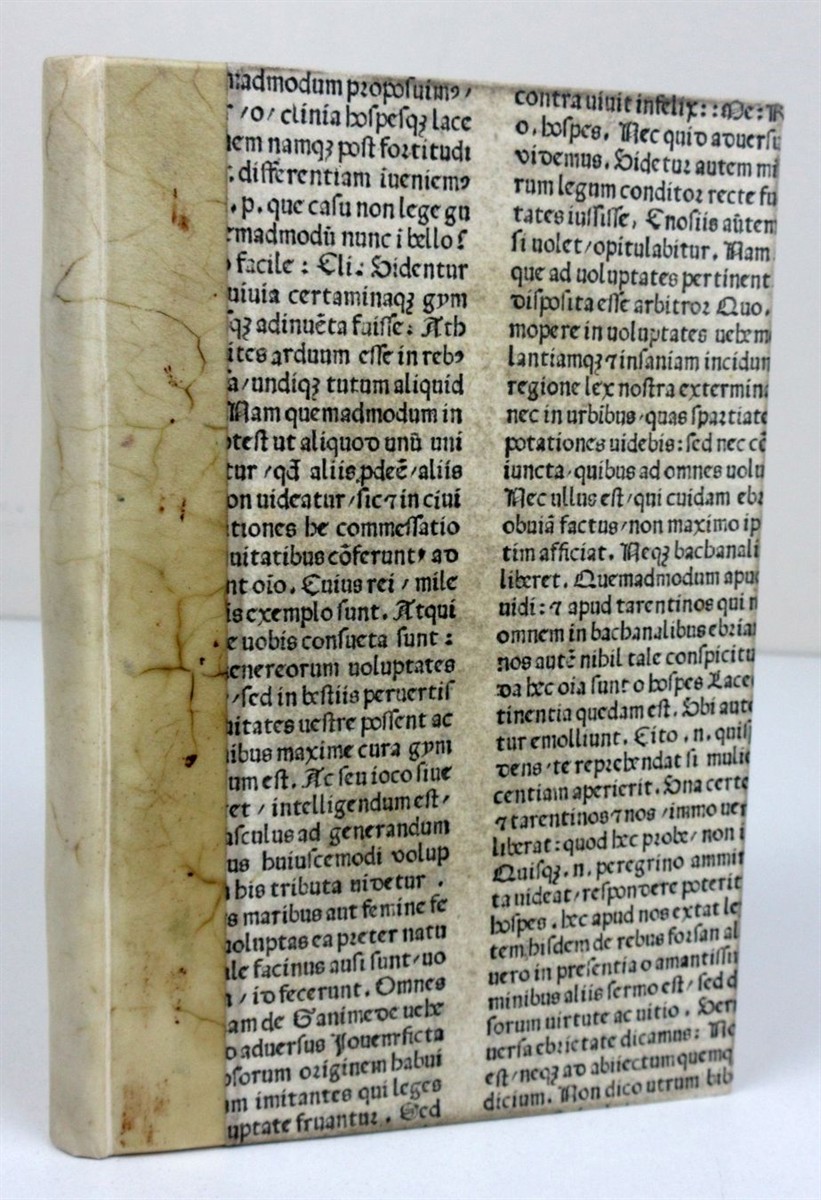 admodum propoſuimꝰ/
/o/ clinia hoſpeſqꝫ lace
em namqꝫ poſt fortitudi
. differentiam iueniemꝰ
. p. que caſu non lege gu
madmodū nunc i bello ſ
facile : Cli: Uidentur
uiuia certaminaqꝫ gym
qꝫ adinuēta fuiſſe: Ath
ites arduum eſſe in rebꝰ
a/undiqꝫ tutum aliquid
Nam quemadmodum in
teſt ut aliquod unū uni
tur /qđ aliis ꝓdeē/aliis
on uideatur/ſic⁊in ciui
tiones he commeſſatio
uitatibus cōferunt, ad
nt oīo. Cuius rei / mile
is exemplo ſunt. Atqui
e uobis conſueta ſunt :
enereorum uoluptates
/ſed in beſtiis peruertiſ
uitates ueſtre poſſent ac
ibus maxime cura gym
um eſt. Ac ſeu ioco ſiue
et / intelligendum eſt/
aſculus ad generandum
us huiuſcemodi volup
his tributa uidetur .
s maribus aut femine fe
uoluptas ea preter natu
le facinus auſi ſunt/uo
/ id fecerunt. Omnes
am de Ganimede uehe
aduerſus Iouem ficta
oſorum originem habui
m imitantes qui leges
uptate fruantur. Sed
contra uiuit infelix: :Me:
o. hoſpes. Nec quid aduerſu
videmus. Uidetur autem mi
rum legum conditor recte fu
tates iuſſiſſe, Cnoſiis aūtem
ſi uolet/opitulabitur. Nam
que ad uoluptates pertinent
diſpoſita eſſe arbitror Quo.
mopere in uoluptates uehem
lantiamqꝫ⁊inſaniam incidun
regione lex noſtra extermin
nec in urbibus/quas ſpartiate
potationes uidebis:ſed nec cē
iuncta/quibus ad omnes uolu
Nec ullus eſt/qui cuidam ebr
obuiā factus/non maximo ip
tim afficiat. Neqꝫ bachanali
liberet. Quemadmodum apu
uidi: ⁊ apud tarentinos qui n
omnem in bachanalibus ebria
nos autē nibil tale conſpicitu
da hec oīa ſunt o hoſpes Lace
tinentia quedam eſt. Ubi aute
tur emolliunt. Cito .n. quiſ
dens/te reprehendat ſi mulie
centiam aperierit. Una certe
⁊tarentinos⁊nos/immo uer
liberat:quod hec probe/ non i
Quiſqꝫ.n. peregrino ammir
ta uideat/reſpondere poterit
hoſpes. hec apud nos extat le
tem hiſdem de rebus forſan al
uero in preſentia o amantiſſi
minibus aliis ſermo eſt/ ſed d
ſorum uirtute ac uitio . Ueri
uerſa ebrietate dicamus: Ne
eſt/neqꝫ ad abiectum quemq
dicium. Non dico utrum bib